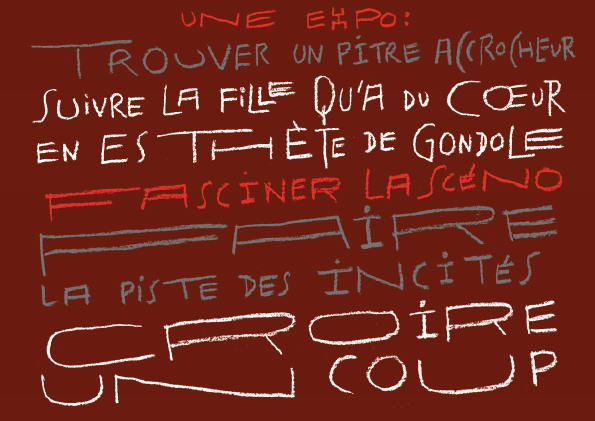 UNE EXPO:
TROUVER UN PITRE ACCROCHEUR
SUIVRE LA FILLE QU'A DU CŒUR
EN ESTHÈTE DE GONDOLE
FASCINER LA SCÉNO
FAIRE
LA PISTE DES INCITÉS
CROIRE
UN COUP